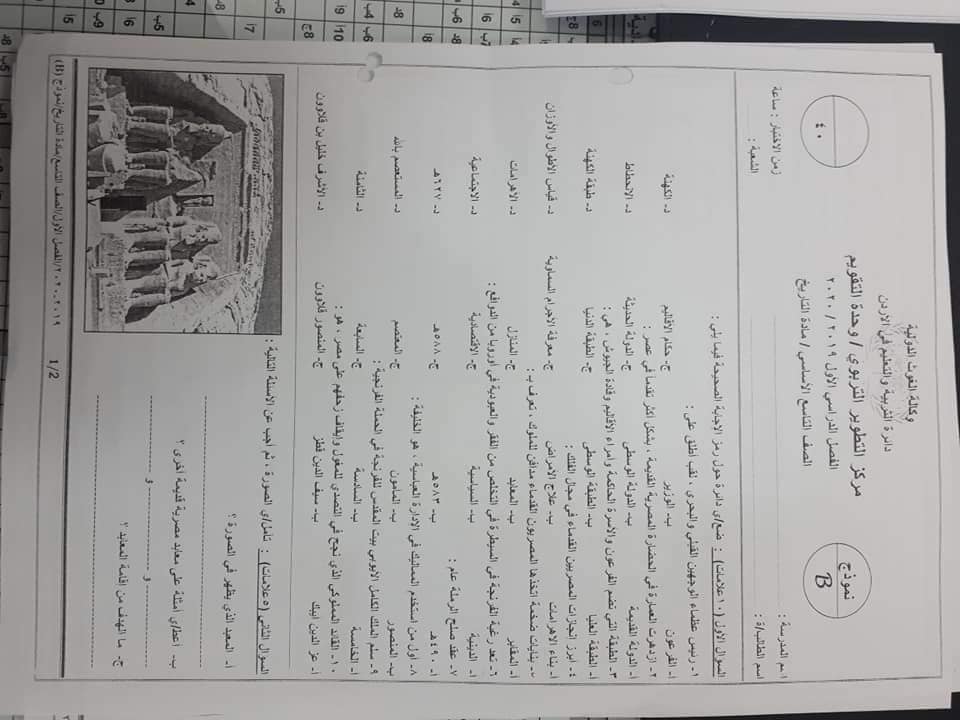 وكالة الغوث الدولية
دائرة التربية والتعليم في الاردن
مركز التطوير التربوي / وحدة التقويم
الفصل الدراسي الاول ٢٠١٩ / ٢٠٢٠
الصف التاسع الأساسي / مادة التاريخ
نموذج
B
٤٠
اسم المدرسة :
اسم الطالب/ة :
زمن الاختبار : ساعة
الشعبة :
السؤال الاول (١٠ علامات) : ضع/ي دائرة حول رمز الإجابة الصحيحة فيما يلي :
١- رئيس عظماء الوجهين القبلي والبحري ، لقب أطلق على :
أ- الفرعون ب- الوزير ج- حكام الأقاليم د- الكهنة
٢- ازدهرت العمارة في الحضارة المصرية القديمة ، بشكل أكثر تقدما في عصر :
أ- الدولة القديمة ب- الدولة الوسطى ج- الدولة الحديثة د- الانحطاط
٣- الطبقة التي تضم الفرعون والاسرة الحاكمة وامراء الأقاليم وقادة الجيوش ، هي :
أ- الطبقة العليا ب- الطبقة الوسطى ج- الطبقة الدنيا د- طبقة الكهنة
٤- أبرز انجازات المصريين القدماء في مجال الفلك :
أ- بناء الاهرامات ب- علاج الامراض ج- معرفة الاجرام السماوية د- قياس الاطوال والأوزان
بنايات ضخمة اتخذها المصريون القدماء مدافن للملوك ، تعرف ب :
أ- المقابر ب- المعابد ج- المنازل د- الاهرامات
٦- تعد رغبة الفرنجة في السيطرة في التخلص من الفقر والعبودية في أوروبا من الدوافع :
أ- الدينية ب- السياسية ج- الاقتصادية د- الاجتماعية
٧- عقد صلح الرملة عام :
أ- ٤٩٠هـ ب- ٥٨٣هـ ج- ٥٨٨هـ د- ٦٢٧هـ
٨- أول من استخدم المماليك في الادارة العباسية ، هو الخليفة :
ب- المنصور المأمون ج- المعتصم د- المستعصم بالله
٩- سلم الملك الكامل الأيوبي بيت المقدس للفرنجة في الحملة الفرنجية :
أ- الخامسة ب- السادسة ج- السابعة د- الثامنة
١٠- القائد المملوكي الذي نجح في التصدي للمغول وإيقاف زحفهم على مصر ، هو :
أ- عز الدين أيبك ب- سيف الدين قطز ج- المنصور قلاوون د- الاشرف خليل بن قلاوون
السؤال الثاني (٥ علامات) : تأمل/ي الصورة ، ثم أجب عن الاسئلة التالية :
أ- المعبد الذي يظهر في الصورة ؟
ب- أعط/ي أمثلة على معابد مصرية قديمة أخرى ؟
و و
ج- ما الهدف من إقامة المعابد ؟
1/2
٢٠١٩-٢٠٢٠/الفصل الاول/الصف التاسع/مادة التاريخ/نموذج (B)